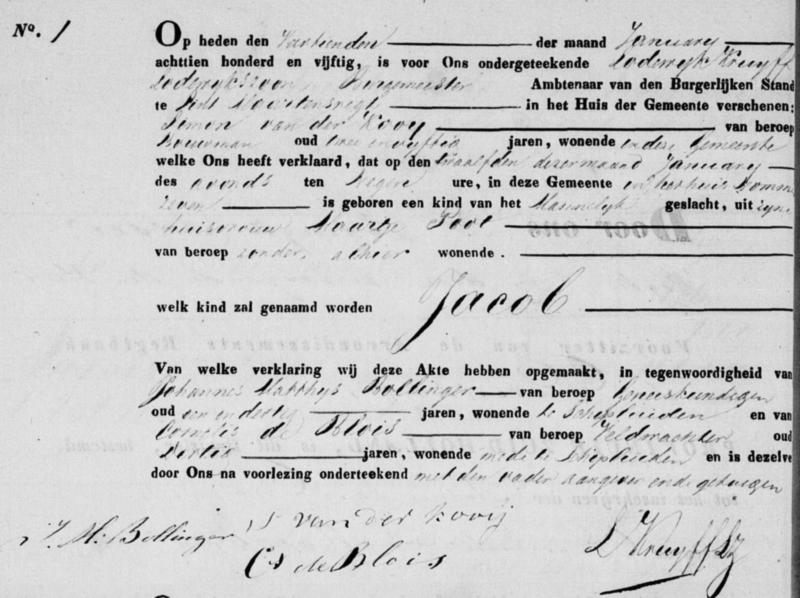 No. 1
Op heden den Dertienden der maand January
achttien honderd en vijftig, is voor Ons ondergeteekende Lodewyk Kruyff
Lodewykszoon Burgemeester Ambtenaar van den Burgerlijken Stand
te Sint Maartensregt in het Huis der Gemeente verschenen;
Simon van der Kooy van beroep
Bouwman oud twee en vyftig jaren, wonende in deze Gemeente
welke Ons heeft verklaard, dat op den twaalfden dezer maand January
des avonds ten negen ure, in deze Gemeente in het huis
is geboren een kind van het Mannelyk geslacht, uit zyne
huisvrouw Maartje Poot
van beroep zonder, alhier wonende.
welk kind zal genaamd worden Jacob
Van welke verklaring wij deze Akte hebben opgemaakt, in tegenwoordigheid van
Johannes Matthys Bollinger van beroep Geneeskundigen
oud een en dertig jaren, wonende te Schipluiden en van
Cornelis de Blois van beroep Veldwachter oud
jaren, wonende mede te Schipluiden en is dezelve
door Ons na voorlezing onderteekend met den vader aangever en de getuigen
J. M. Bollinger
S van der Kooij
Cs de Blois
L Kruyff Lz